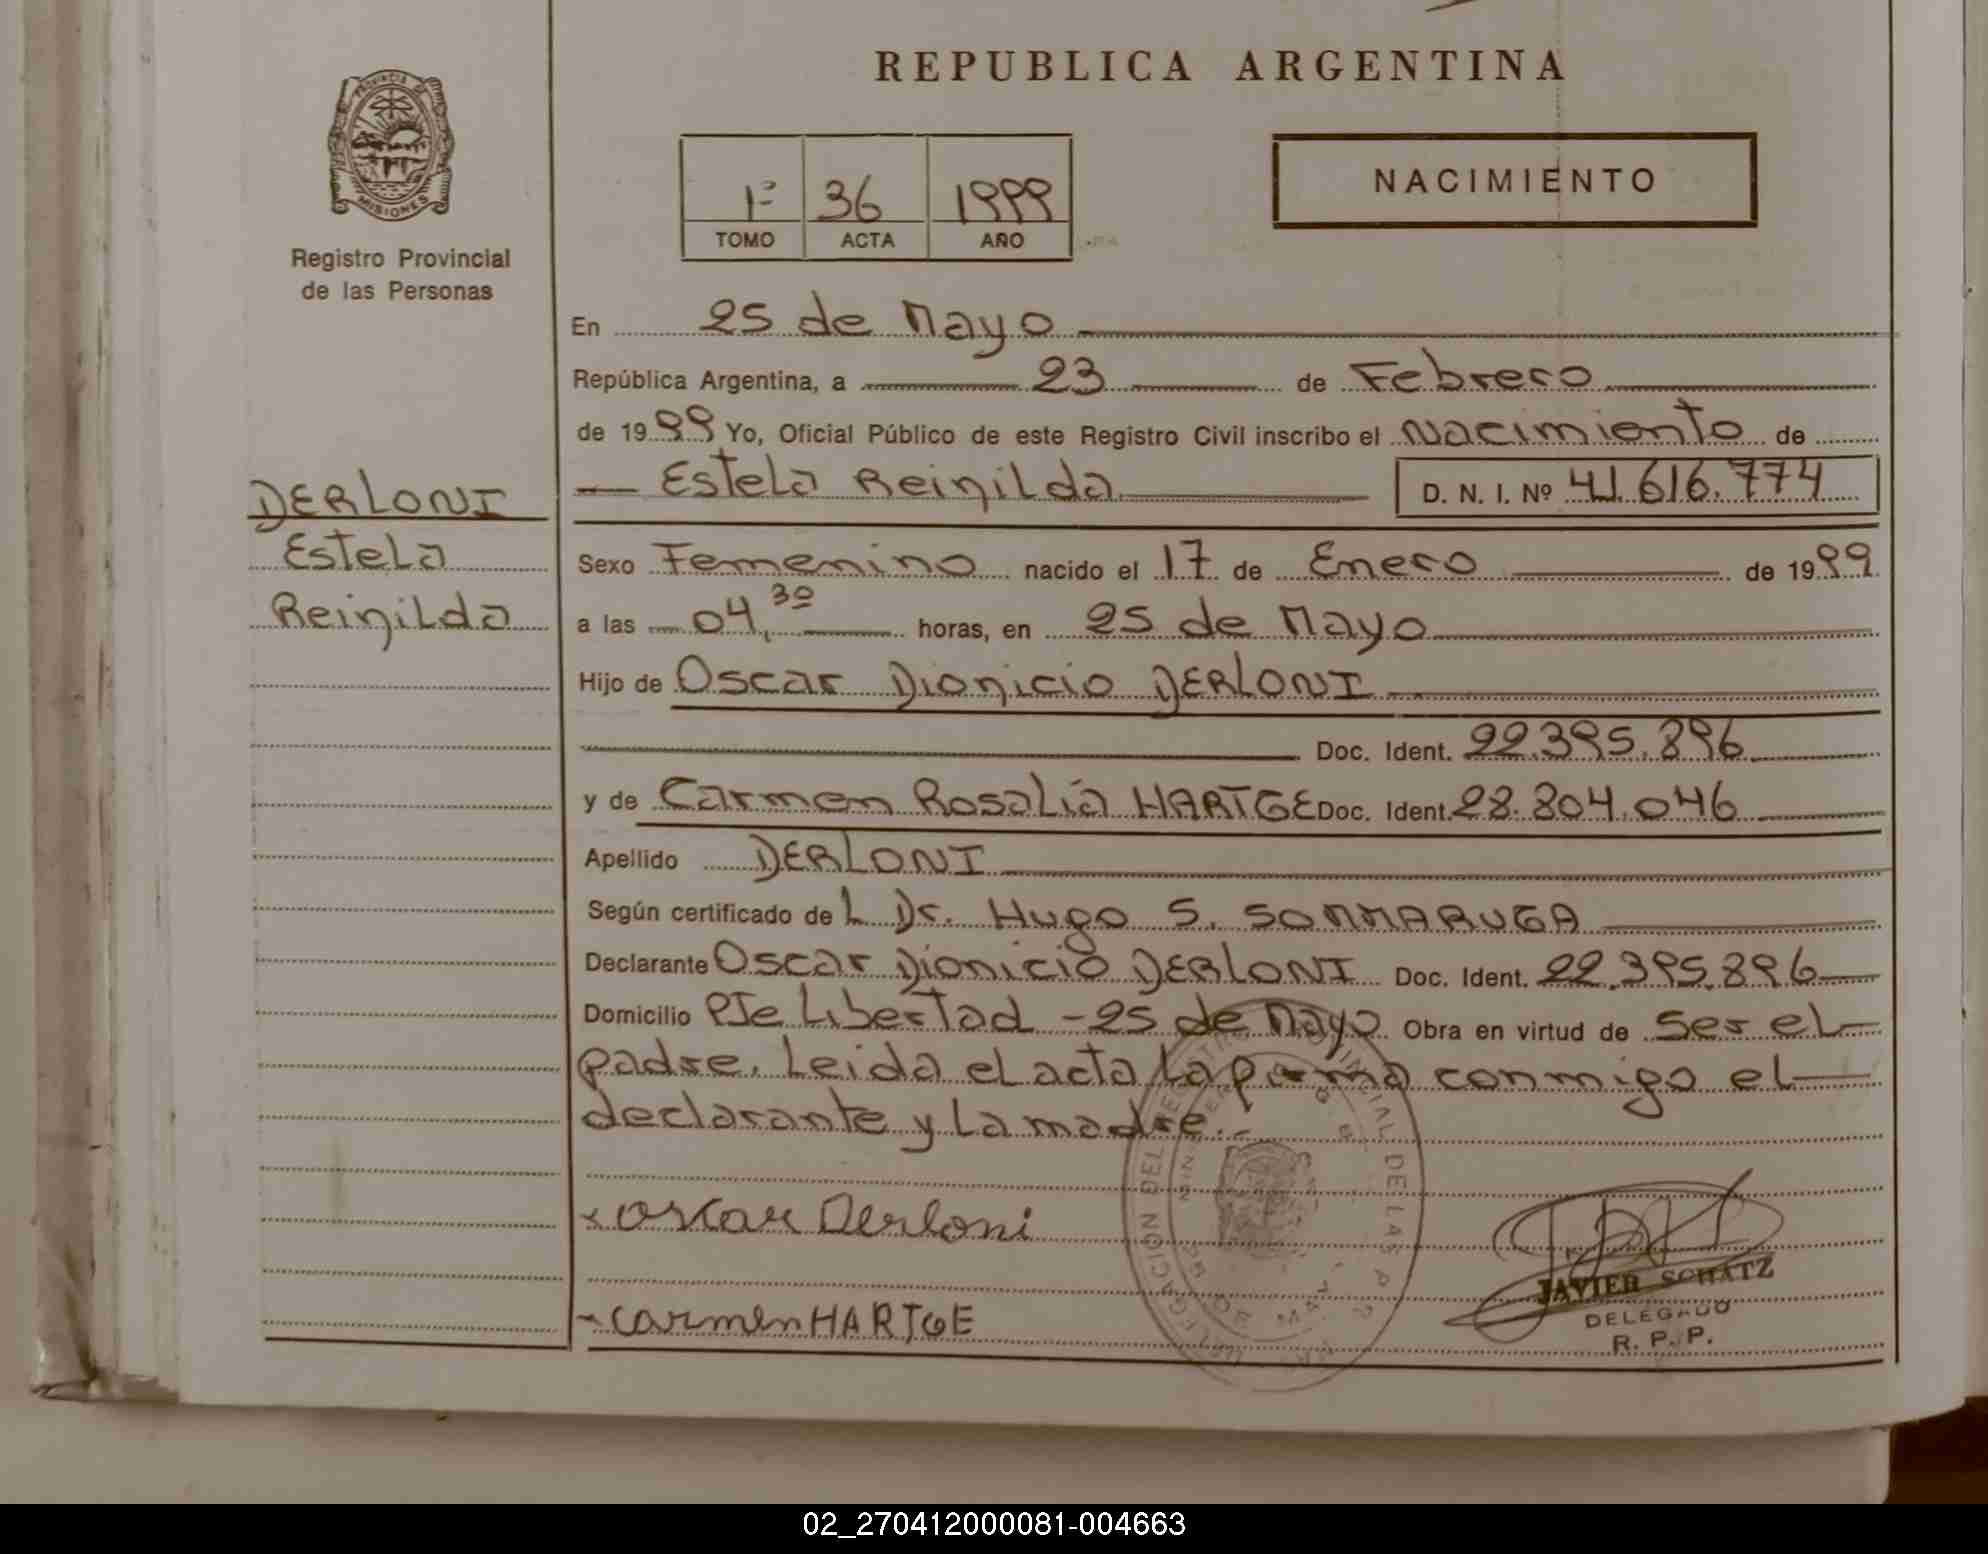 REPUBLICA ARGENTINA
PROVINCIA DE
MISIONES
Registro Provincial
de las Personas
1º 36 1999
TOMO ACTA AÑO
NACIMIENTO
En 25 de Mayo
República Argentina, a 23 de Febrero
de 1999 Yo, Oficial Público de este Registro Civil inscribo el Nacimiento de
Estela Reinilda D. N. I. Nº 41.616.774
DERLONI
Estela
Reinilda
Sexo Femenino nacido el 17 de Enero de 1999
a las 04,30 horas, en 25 de Mayo
Hijo de Oscar Dionicio DERLONI
Doc. Ident. 22.395.896
y de Carmen Rosalía HARTGE Doc. Ident. 28.804.046
Apellido DERLONI
Según certificado del Dr. Hugo S. SOMMARUGA
Declarante Oscar Dionicio DERLONI Doc. Ident. 22.395.896
Domicilio PJe Libertad - 25 de Mayo Obra en virtud de ser el
padre. Leida el acta la firma conmigo el
declarante y la madre.-
x Oscar Derloni
x Carmen HARTGE
JAVIER SCHATZ
DELEGADO
R. P. P.
02_270412000081-004663